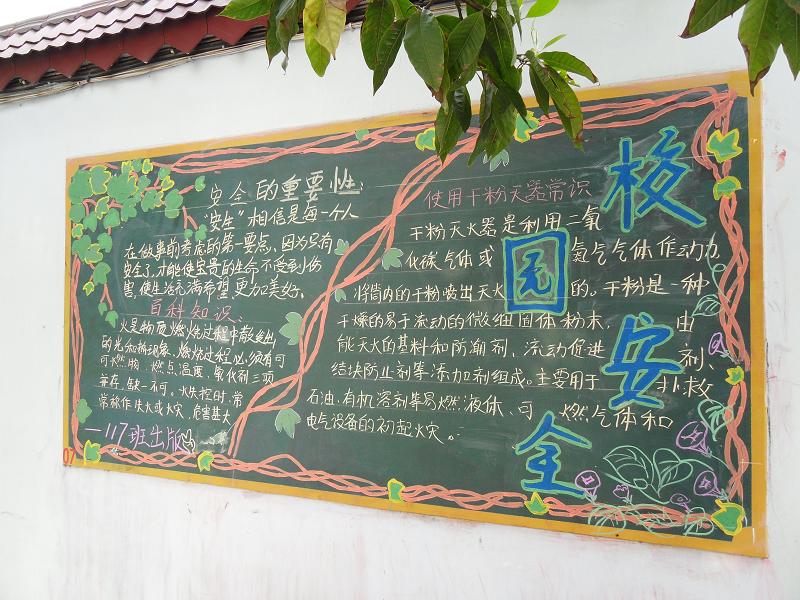 安全的重要性:
"安生"相信是每一个人
在做事前考虑的第一要点,因为只有
安全了,才能使宝贵的生命不受到伤
害,使生活充满希望更加美好。
百科知识:
火是物质燃烧过程中散发出
的光和热现象,燃烧过程必须有可
可燃物、燃点、温度、氧化剂三项
并存,缺一不可。火失控时,常
常称作失火或火灾,危害甚大
—117班出版
07
使用干粉灭器常识
干粉灭火器是利用二氧
化碳气体或 氮气气体作动力,
将筒内的干粉喷出灭火 的。干粉是一种
干燥的易于流动的微细固体粉末, 由
能灭火的基料和防潮剂、流动促进 剂、
结块防止剂等添加剂组成。主要用于 扑救
石油、有机溶剂等易燃液体、可 燃气体和
电气设备的初起火灾。
校园安全